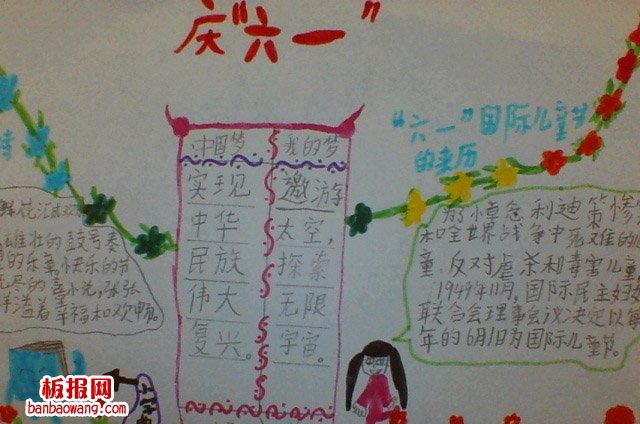 庆“六一”
鲜花汇成欢
雄壮的鼓号奏
的乐章,快乐的节
尽的喜
张张
洋溢着幸福和欢畅。
中国梦
实现
中华
民族
伟大
复兴。
我的梦
遨游
太空,
探索
无限
宇宙。
“六一”国际儿童节
的来历
为了悼念利迪策惨
和全世界战争中死难的
童,反对虐杀和毒害儿童
1949年11月,国际民主妇
联合会理事会议决定以每
年的6月1日为国际儿童节。
板报网
banbaowang.com